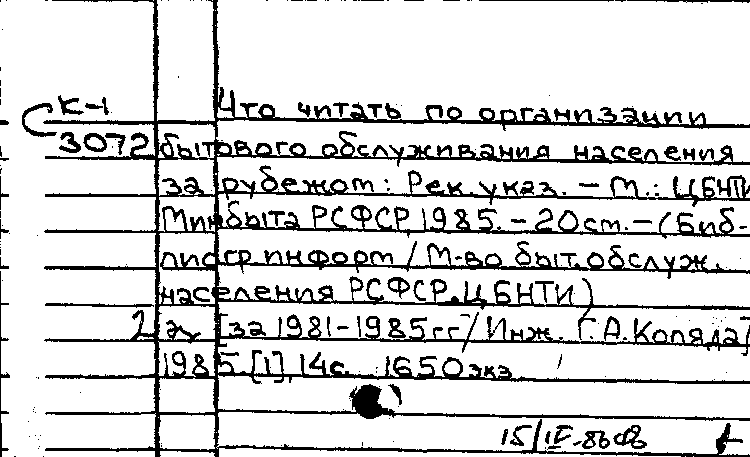 К-1 Что читать по организации
3072 бытового обслуживания населения
за рубежом: Рек. указ. – М.: ЦБНТИ
Минбыта РСФСР, 1985. – 20 см. – (Биб-
лиогр. информ / М-во быт. обслуж.
населения РСФСР. ЦБНТИ)
2 [за 1981-1985 гг / Инж. Г. А. Коляда]
1985. [1], 14 с. 1650 экз
15/IV-86